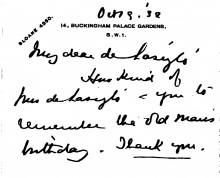 Oct 9. '32
SLOANE 4590.
14, BUCKINGHAM PALACE GARDENS,
S.W.1.
My dear de László
How kind of
Mrs de László & you to
remember the old man's
birthday. Thank you.